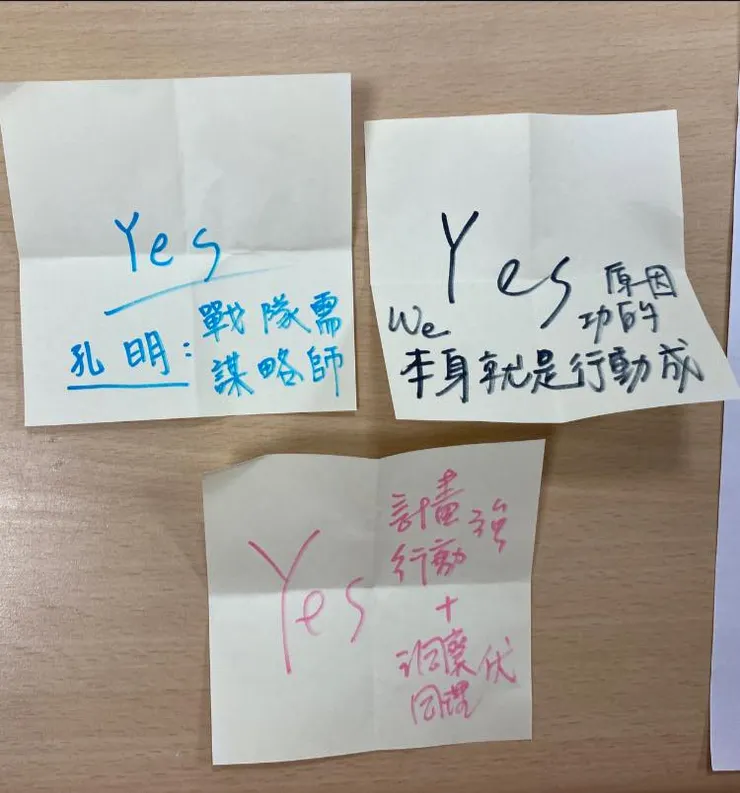 Yes
孔明：戰隊需
謀略師
Yes
We 原因
功的
本身就是行動成
Yes
計畫 強
行動
+
洞察 伏
同理